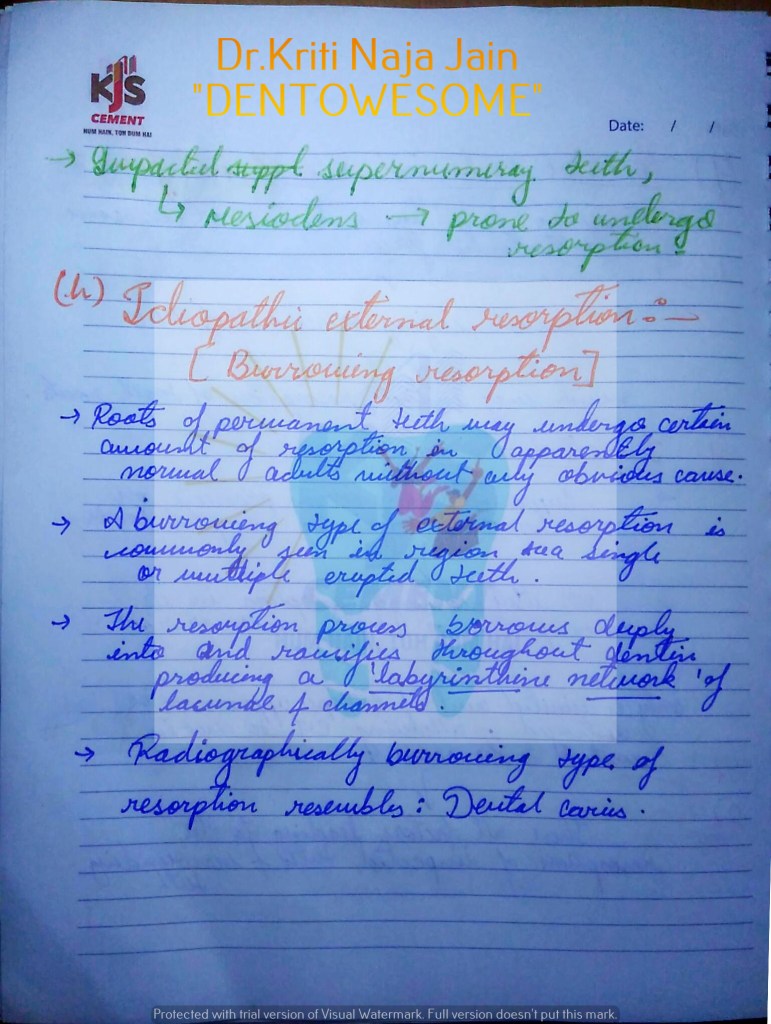 Dr.Kriti Naja Jain
"DENTOWESOME"
KJS
CEMENT
HUM HAIN, TOH DUM HAI
Date: / /
→ Impacted suppl supernumeray teeth,
↳ Mesiodens → prone to undergo
resorption.
(h) Idiopathic external resorption :-
[ Burrowing resorption]
→ Roots of permanent teeth may undergo certain
amount of resorption in apparently
normal adults without any obvious cause.
→ A burrowing type of external resorption is
commonly seen in region single
or multiple erupted teeth.
→ The resorption process borrows deeply
into and ramifies throughout dentin
producing a 'labyrinthine network' of
lacunal & channels.
→ Radiographically burrowing type of
resorption resembles: Dental caries.
Protected with trial version of Visual Watermark. Full version doesn't put this mark.